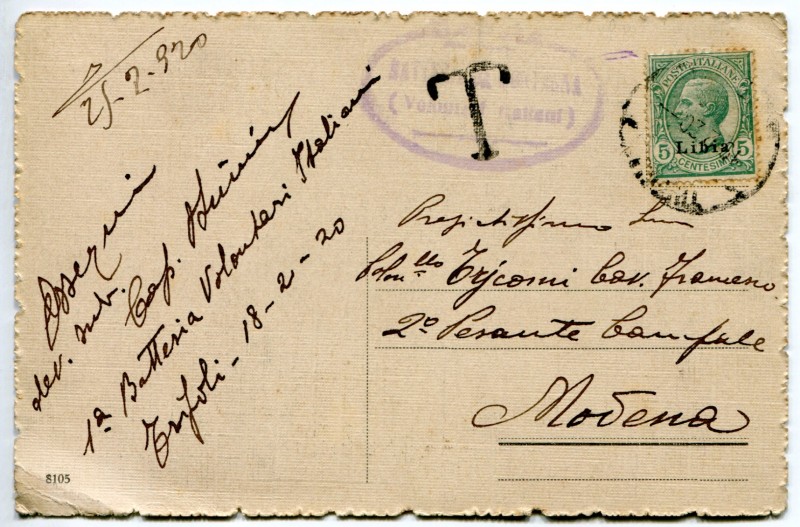 25-2-920
T
(Volontari Italiani)
POSTE ITALIANE
Libia
5 5
CENTESIMI
Ossequi
dev. sub.
Cap.
1ª Batteria Volontari Italiani
Tripoli - 18-2-20
Pregiatissimo Sig.
Colon.llo Trjcomi Cav. Francesco
2º Pesante Campale
Modena
8105